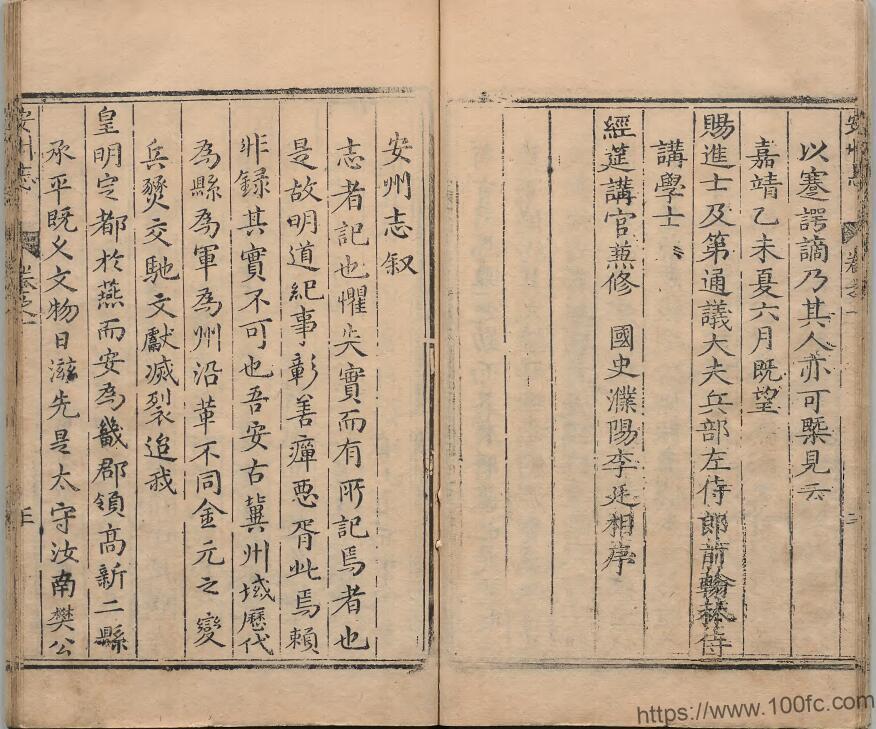 以蹇諤謫乃其人亦可槩見云
嘉靖乙未夏六月既望
賜進士及第通議大夫兵部左侍郎前翰林侍
講學士
經筵講官兼修 國史濮陽李廷相序
安州志叙
志者記也懼失實而有所記焉者也
是故明道紀事彰善癉惡胥此焉賴
非録其實不可也吾安古冀州域歷代
為縣為軍為州沿革不同金元之變
兵燹交馳文獻滅裂迨我
皇明定都於燕而安為畿郡領高新二縣
承平既久文物日滋先是太守汝南樊公
安州志 卷之一
https://www.100fc.com